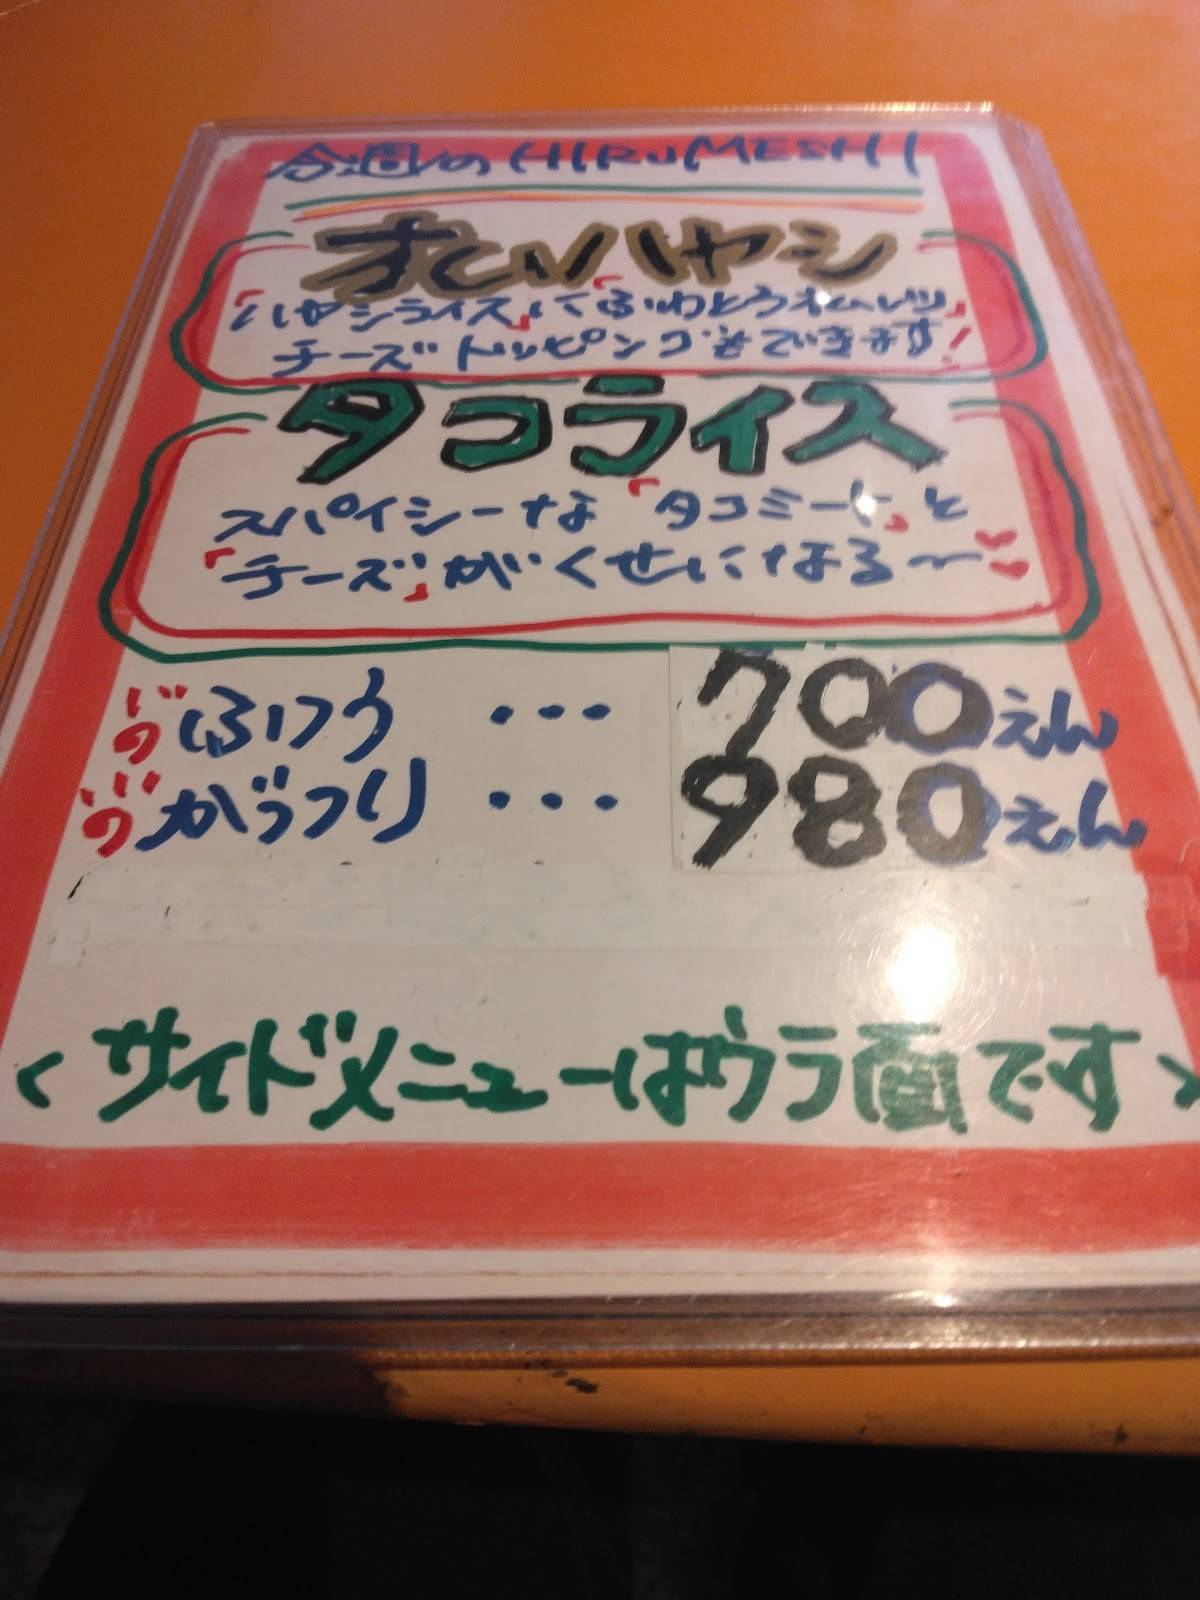 今週のHIRUMESHI
オムハヤシ
「ハヤシライス」に「ふわとろオムレツ」
チーズトッピングもできます!
タコライス
スパイシーな「タコミート」と
「チーズ」がくせになる〜
ふつう ・・・ 700えん
がっつり ・・・ 980えん
<サイドメニューはウラ面です>